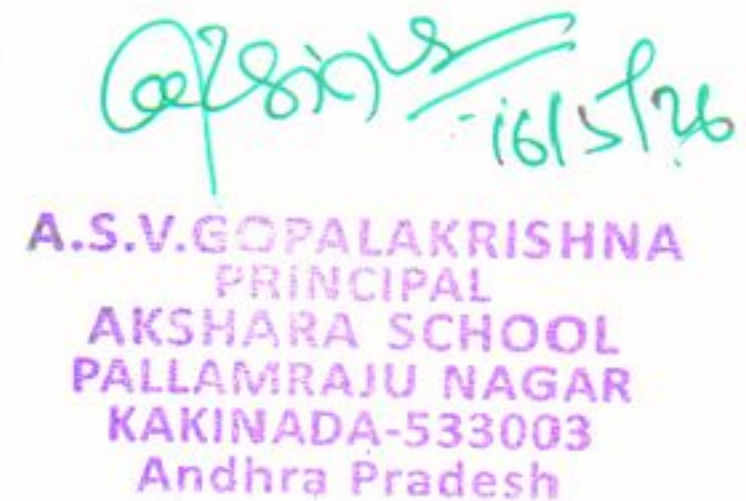 16/5/26
A.S.V.GOPALAKRISHNA
PRINCIPAL
AKSHARA SCHOOL
PALLAMRAJU NAGAR
KAKINADA-533003
Andhra Pradesh